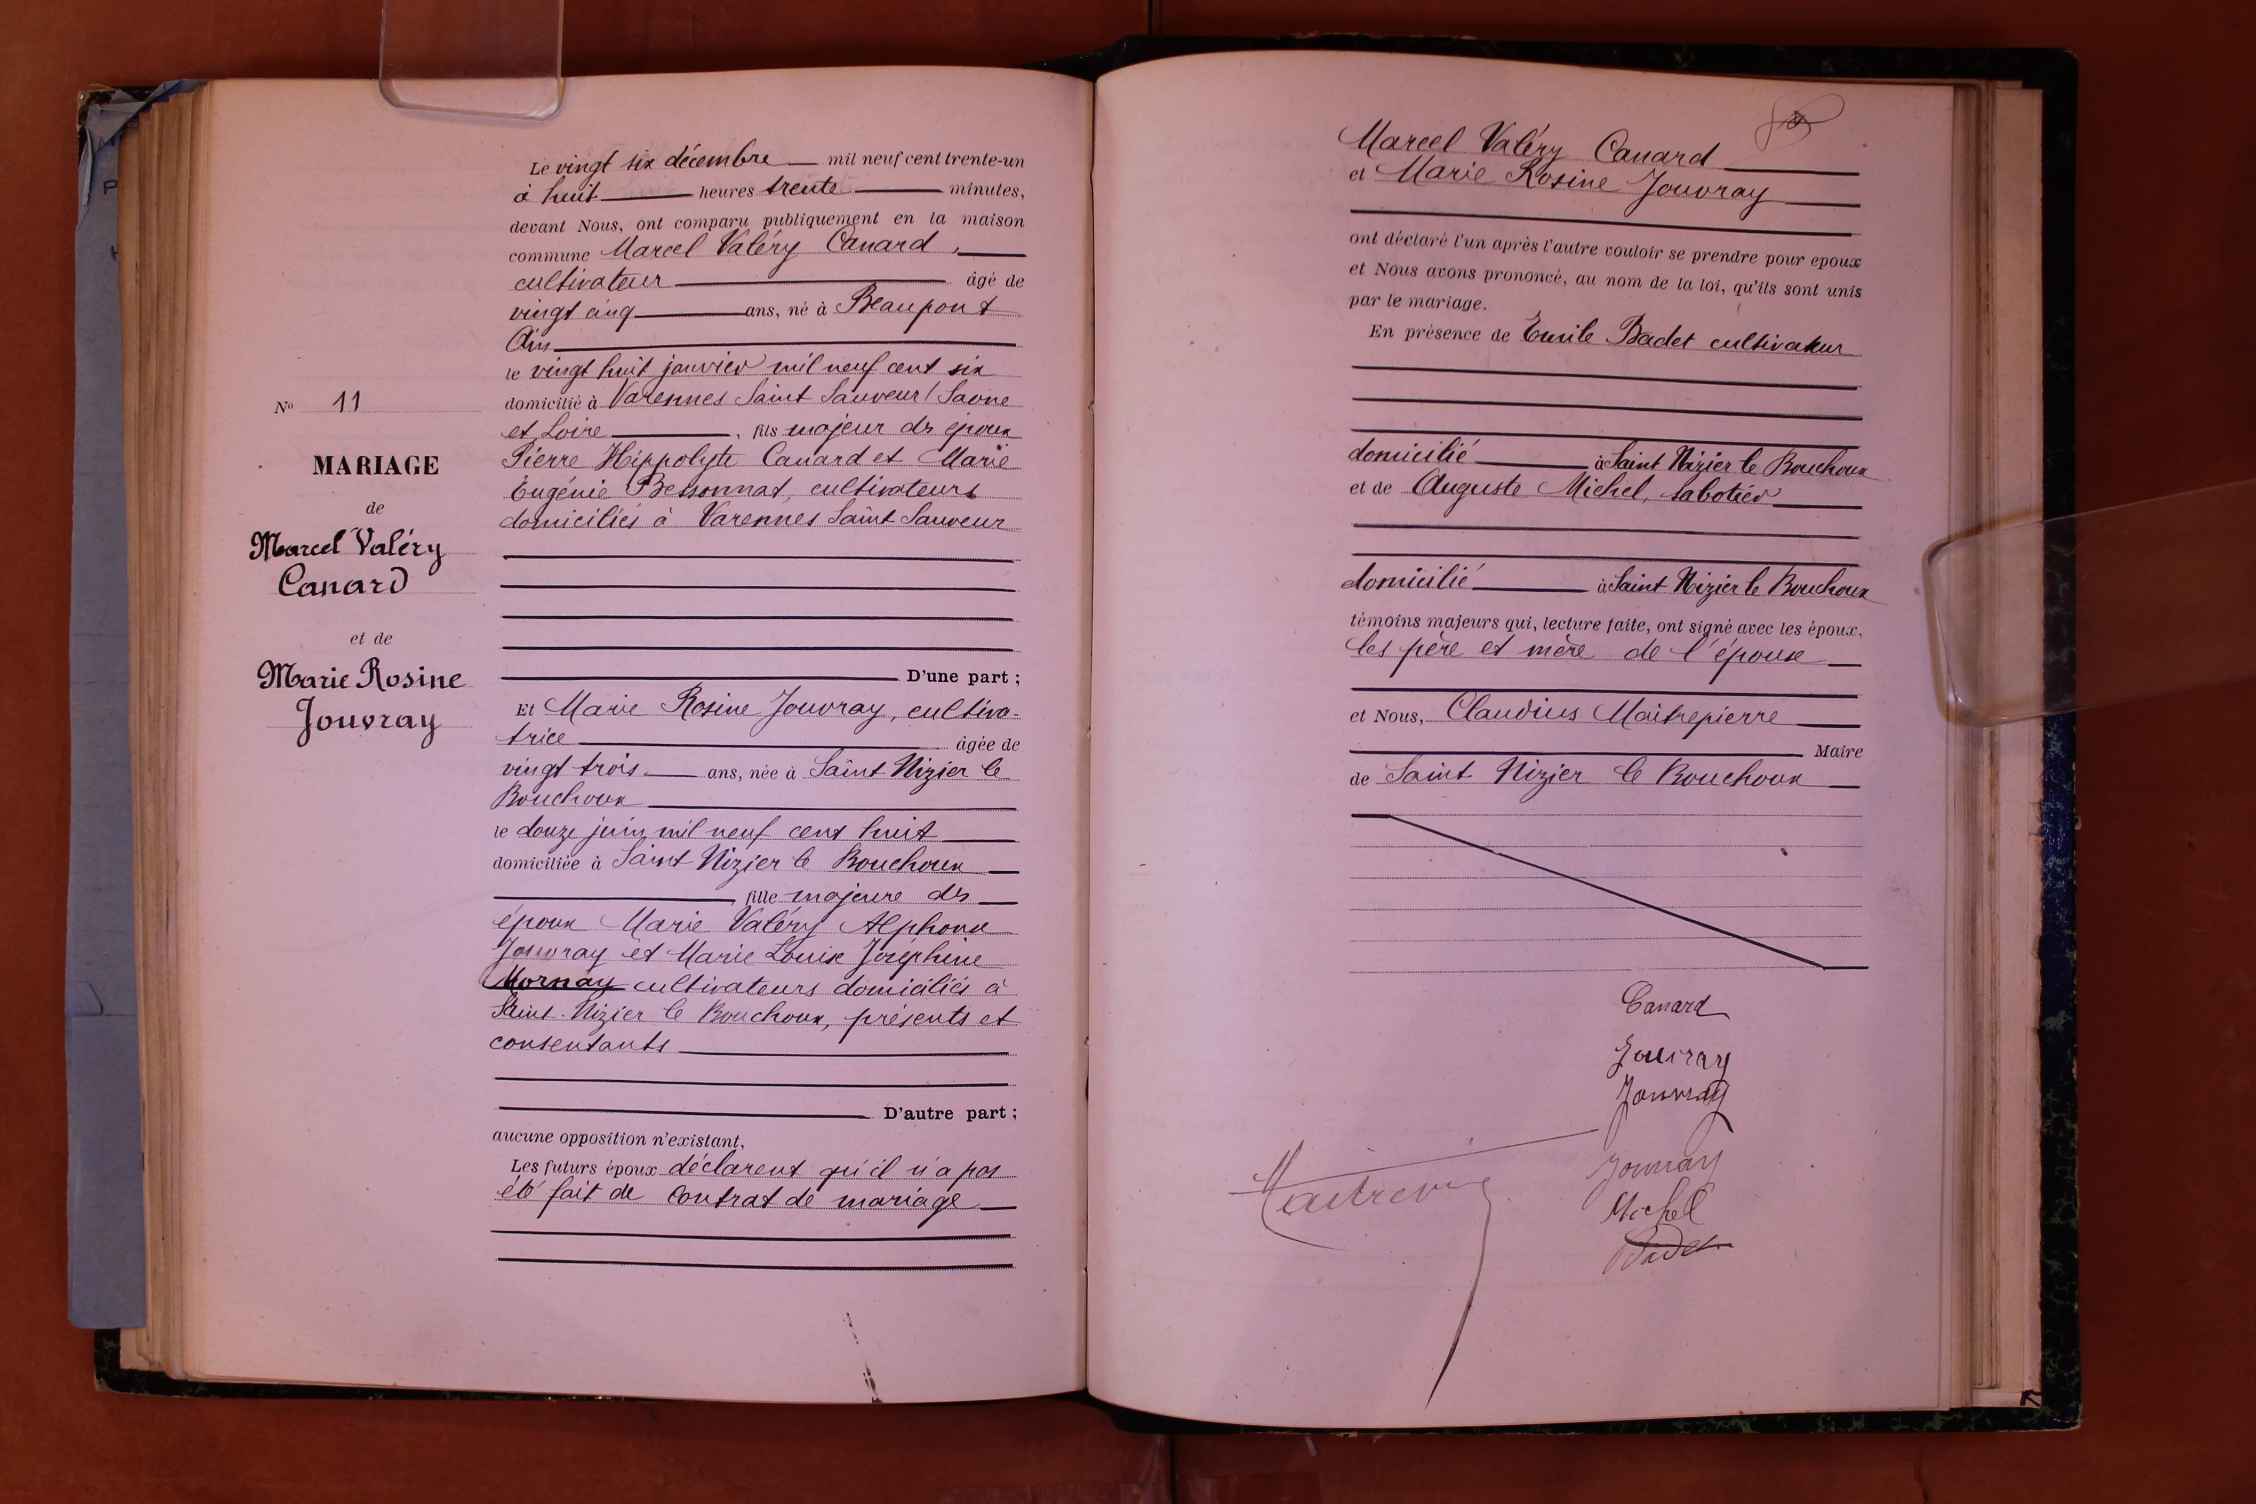 N° 11
MARIAGE
de
Marcel Valéry
Canard
et de
Marie Rosine
Jouvray
Le vingt six décembre mil neuf cent trente-un
à huit heures trente minutes,
devant Nous, ont comparu publiquement en la maison
commune Marcel Valéry Canard,
cultivateur âgé de
vingt cinq ans, né à Beaupont
Ain
le vingt huit janvier mil neuf cent six
domicilié à Varennes Saint Sauveur / Saone
et Loire, fils majeur des époux
Pierre Hippolyte Canard et Marie
Eugénie Bessonnat, cultivateurs
domiciliés à Varennes Saint Sauveur
D'une part ;
Et Marie Rosine Jouvray, cultiva-
trice âgée de
vingt trois ans, née à Saint Nizier le
Bouchoux
le douze juin mil neuf cent huit
domiciliée à Saint Nizier le Bouchoux
, fille majeure des
époux Marie Valéry Alphonse
Jouvray et Marie Louise Joséphine
Mornay cultivateurs domiciliés à
Saint-Nizier le Bouchoux, présents et
consentants
D'autre part ;
aucune opposition n'existant,
Les futurs époux déclarent qu'il n'a pas
été fait de contrat de mariage
Marcel Valéry Canard
et Marie Rosine Jouvray
ont déclaré l'un après l'autre vouloir se prendre pour epoux
et Nous avons prononcé, au nom de la loi, qu'ils sont unis
par le mariage.
En présence de Emile Badet cultivateur
domicilié à Saint Nizier le Bouchoux
et de Auguste Michel, sabotier
domicilié à Saint Nizier le Bouchoux
témoins majeurs qui, lecture faite, ont signé avec les époux,
les père et mère de l'épouse
et Nous, Claudius Maitrepierre
Maire
de Saint Nizier le Bouchoux
Canard
Jouvray
Jouvray
Jouvray
Michel
Badet